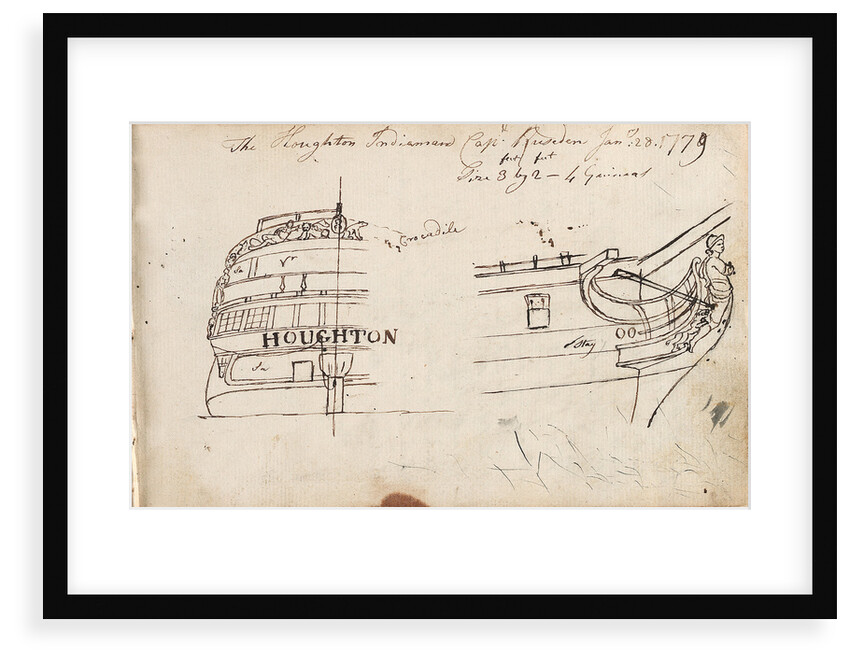 The Houghton Indiaman Capt. Jan. 28. 1779
feet feet
Size 3 by 2 – 4 Guineas
Crocadile
Yr
HOUGHTON
OO